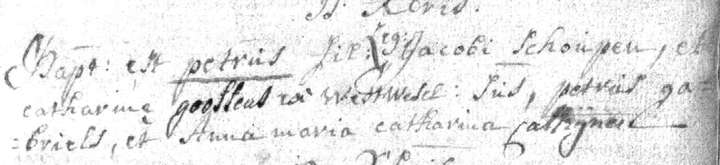 Bapt: est petrus fil: leg: Jacobi Schoupen, et
catharinę goossens ex Wessel: Sus, petrus ga-
=briels, et Anna maria catharina